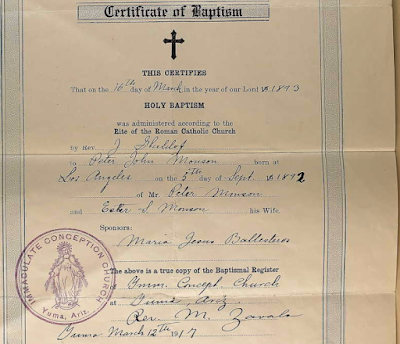 Certificate of Baptism
THIS CERTIFIES
That on the 16th day of March in the year of our Lord 1893
HOLY BAPTISM
was administered according to the
Rite of the Roman Catholic Church
by Rev. J
to Peter John Monson born at
Los Angeles on the 5th day of Sept. 1892
of Mr. Peter Monson
and Ester S Monson his Wife.
Sponsors:
Maria Jesus Ballesteros
The above is a true copy of the Baptismal Register
Imm. Concept. Church
at Yuma, Ariz.
Rev. M. Zavala
Yuma March 12th 1917
IMMACULATE CONCEPTION CHURCH
Yuma, Ariz.